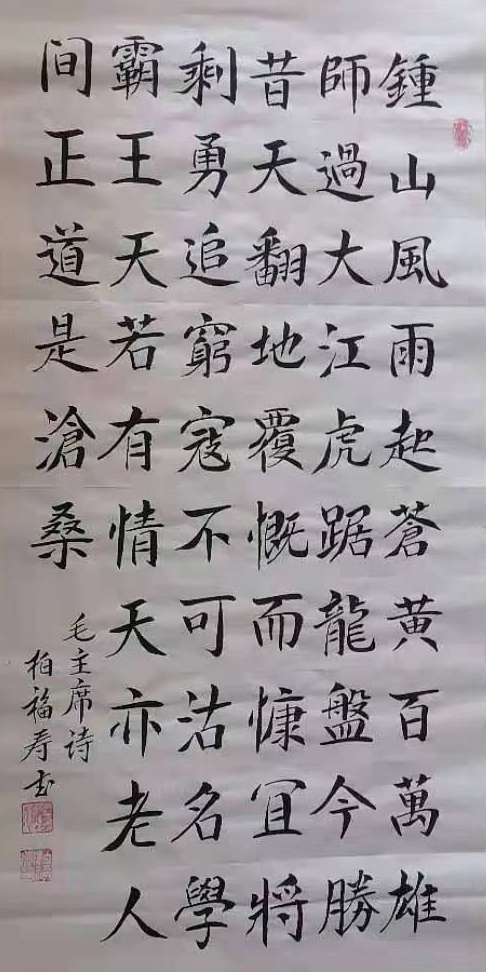 鍾山風雨起蒼黃百萬雄
師過大江虎踞龍盤今勝
昔天翻地覆慨而慷宜將
剩勇追窮寇不可沽名學
霸王天若有情天亦老人
間正道是滄桑
毛主席诗
柏福寿书